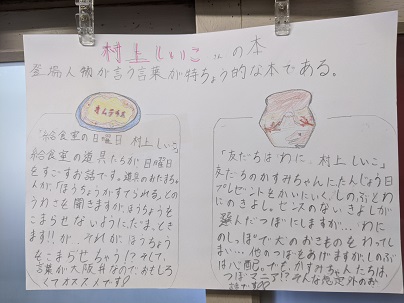 村上しいこ さんの本
登場人物が言う言葉が特ちょう的な本である。
オムライス
「給食室の日曜日 村上しいこ」
給食室の道具たちが日曜日
をすごすお話です。道具のおたまちゃ
んが、「ほうちょうがすてられる」との
うわさを聞きますが、ほうちょうを
こまらせないように、だま、とき
ます!!が、それが、ほうちょう
をこまらせちゃう!?そして、
言葉が大阪弁なので、おもしろ
くてオススメです!
「友だちはわに 村上しいこ」
友だちのかすみちゃんにたんじょう日
プレゼントをかいにいくしのぶとわ
にのきよし。センスのないきよしが
選んだつぼにしますが…わに
のしっぽで犬のおきものをわってし
まい…他のつぼをあげますが、しのぶ
は心配。でも、かすみちゃんたちは、
つぼマニア!?そんな想定外のお
話です